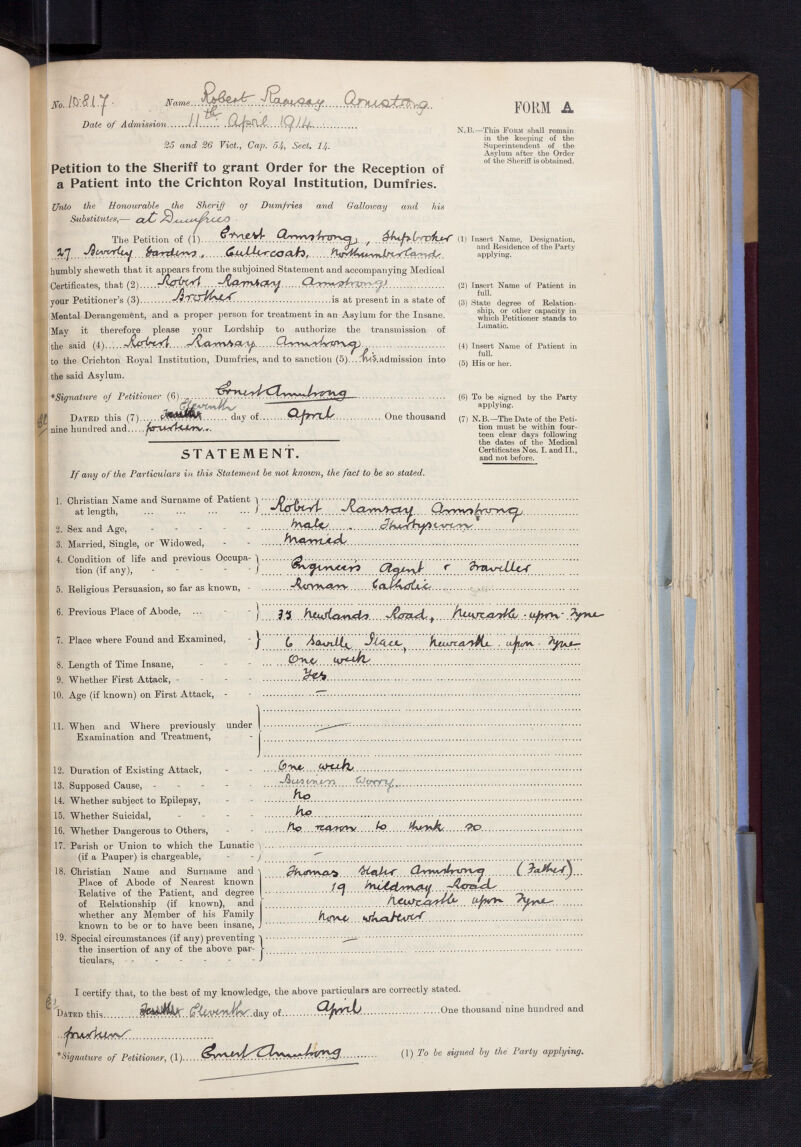 No. 10817. Name Robert Ramsay Armstrong. FORM A
Date of Admission 11th April 1914
25 and 26 Vict., Cap. 54, Sect. 14.
N.B.—This FORM shall remain
in the keeping of the
Superintendent of the
Asylum after the Order
of the Sheriff is obtained.
Petition to the Sheriff to grant Order for the Reception of
a Patient into the Crichton Royal Institution, Dumfries.
Unto the Honourable the Sheriff of Dumfries and Galloway and his
Substitutes,— at Dumfries
The Petition of (1) Ernest Armstrong, Shipbroker
27 Beverley Gardens, Cullercoats, Northumberland
(1) Insert Name, Designation,
and Residence of the Party
applying.
humbly sheweth that it appears from the subjoined Statement and accompanying Medical
Certificates, that (2) Robert Ramsay Armstrong
(2) Insert Name of Patient in
full.
your Petitioner's (3) Brother is at present in a state of
Mental Derangement, and a proper person for treatment in an Asylum for the Insane.
(3) State degree of Relation-
ship, or other capacity in
which Petitioner stands to
Lunatic.
May it therefore please your Lordship to authorize the transmission of
the said (4) Robert Ramsay Armstrong
(4) Insert Name of Patient in
full.
to the Crichton Royal Institution, Dumfries, and to sanction (5) his admission into
(5) His or her.
the said Asylum.
*Signature of Petitioner (6) Ernest Armstrong
(6) To be signed by the Party
applying.
Eleventh
DATED this (7) day of April One thousand
nine hundred and fourteen.
(7) N.B.—The Date of the Peti-
tion must be within four-
teen clear days following
the dates of the Medical
Certificates Nos. I. and II.,
and not before.
STATEMENT.
If any of the Particulars in this Statement be not known, the fact to be so stated.
1. Christian Name and Surname of Patient
at length, Robert Ramsay Armstrong
2. Sex and Age, male. Thirtyseven
3. Married, Single, or Widowed, Married
4. Condition of life and previous Occupa-
tion (if any), Engineers Agent & Traveller
5. Religious Persuasion, so far as known, Roman Catholic
6. Previous Place of Abode, 33 Newlands Road, Newcastle-upon-Tyne
7. Place where Found and Examined, 6 Saville Place, Newcastle upon Tyne
8. Length of Time Insane, One week
9. Whether First Attack, Yes
10. Age (if known) on First Attack, —
11. When and Where previously under
Examination and Treatment, —
12. Duration of Existing Attack, One week
13. Supposed Cause, Business Worry
14. Whether subject to Epilepsy, No
15. Whether Suicidal, No
16. Whether Dangerous to Others, No reason to think so
17. Parish or Union to which the Lunatic
(if a Pauper) is chargeable, —
18. Christian Name and Surname and Thomas Slater Armstrong (Father)
Place of Abode of Nearest known 19 Mildmay Road
Relative of the Patient, and degree
of Relationship (if known), and Newcastle upon Tyne
whether any Member of his Family None whatever
known to be or to have been insane,
19. Special circumstances (if any) preventing —
the insertion of any of the above par-
ticulars,
I certify that, to the best of my knowledge, the above particulars are correctly stated.
DATED this Eleventh day of April One thousand nine hundred and
fourteen
*Signature of Petitioner, (1) Ernest Armstrong (1) To be signed by the Party applying.